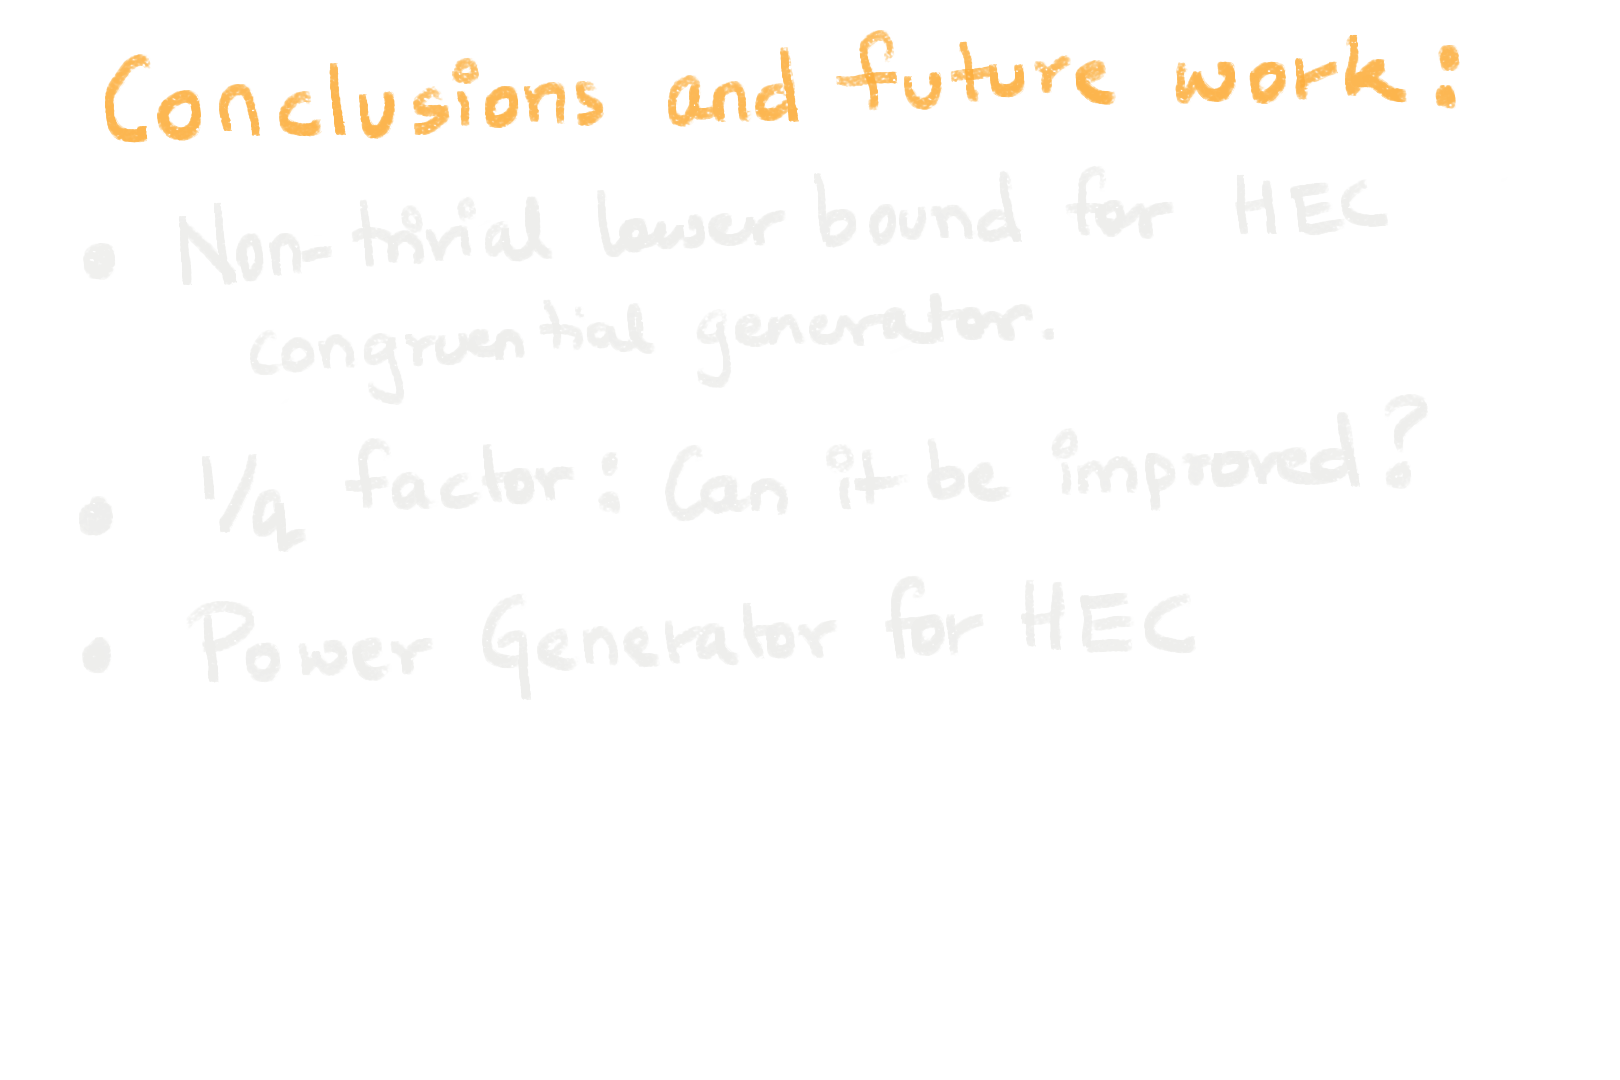 Conclusions and future work:
• Non-trivial lower bound for HEC
congruential generator.
• 1/q factor: Can it be improved?
• Power Generator for HEC